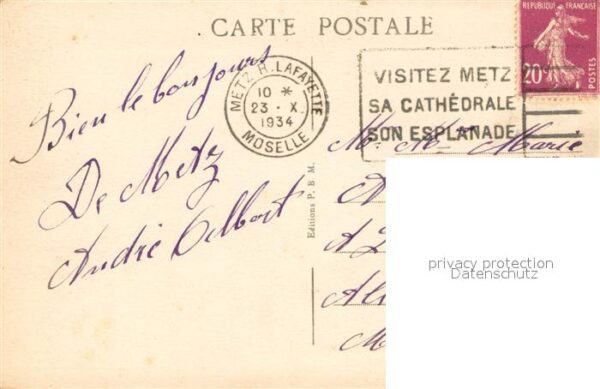 CARTE POSTALE
REPUBLIQUE FRANÇAISE
20c
POSTES
METZ R. LAFAYETTE
10 *
23 - X
1934
MOSELLE
VISITEZ METZ
SA CATHÉDRALE
SON ESPLANADE
Bien le bonjours
De Metz
André Albert
Editions P. B. M.
Mr. Mme Marie
A
A
Al
M
privacy protection
Datenschutz